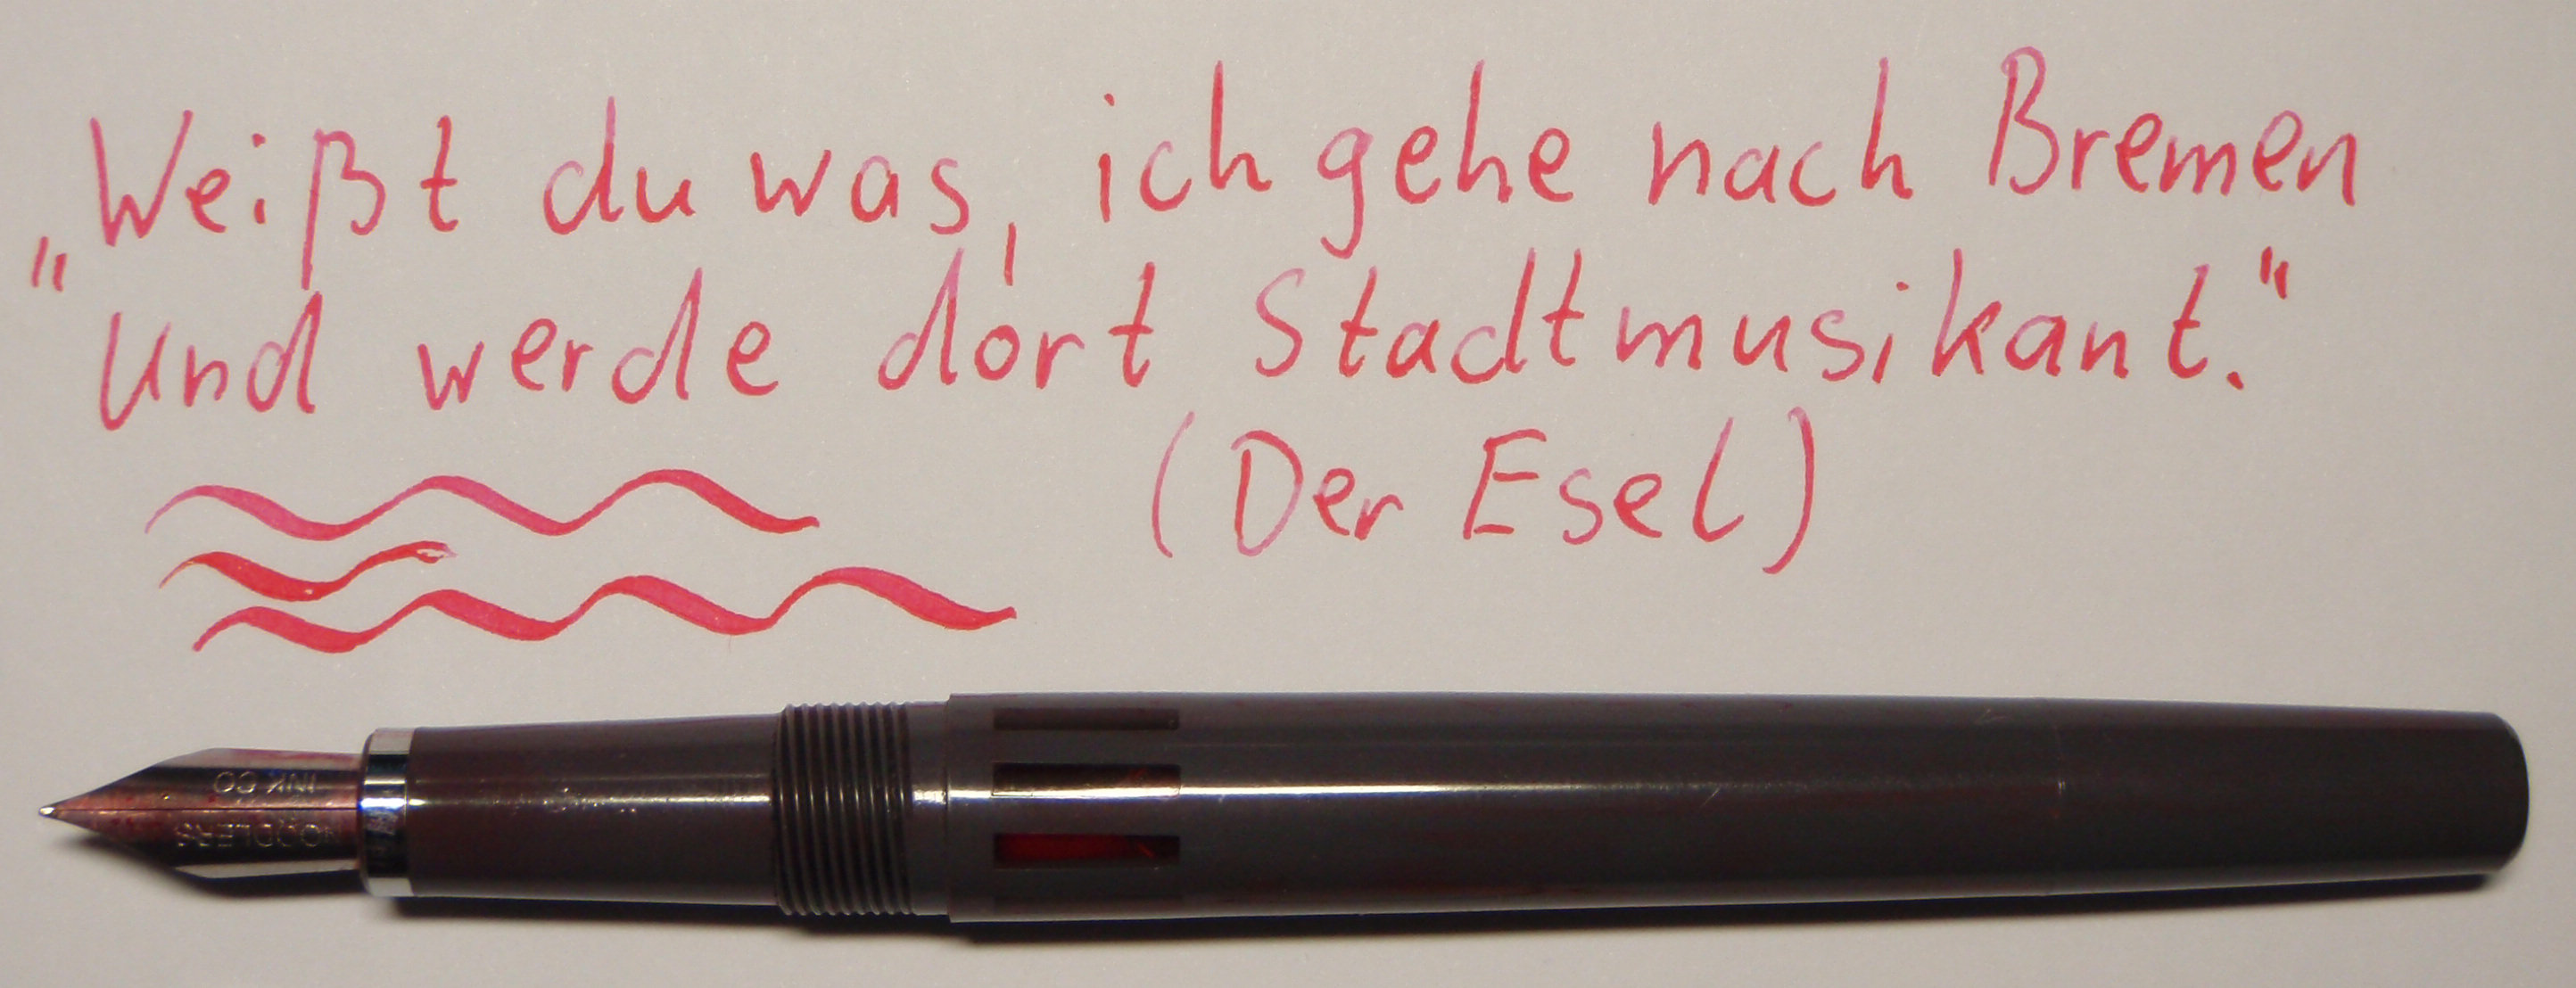 „Weißt du was, ich gehe nach Bremen
und werde dort Stadtmusikant.“
(Der Esel)
INK CO
NOODLERS